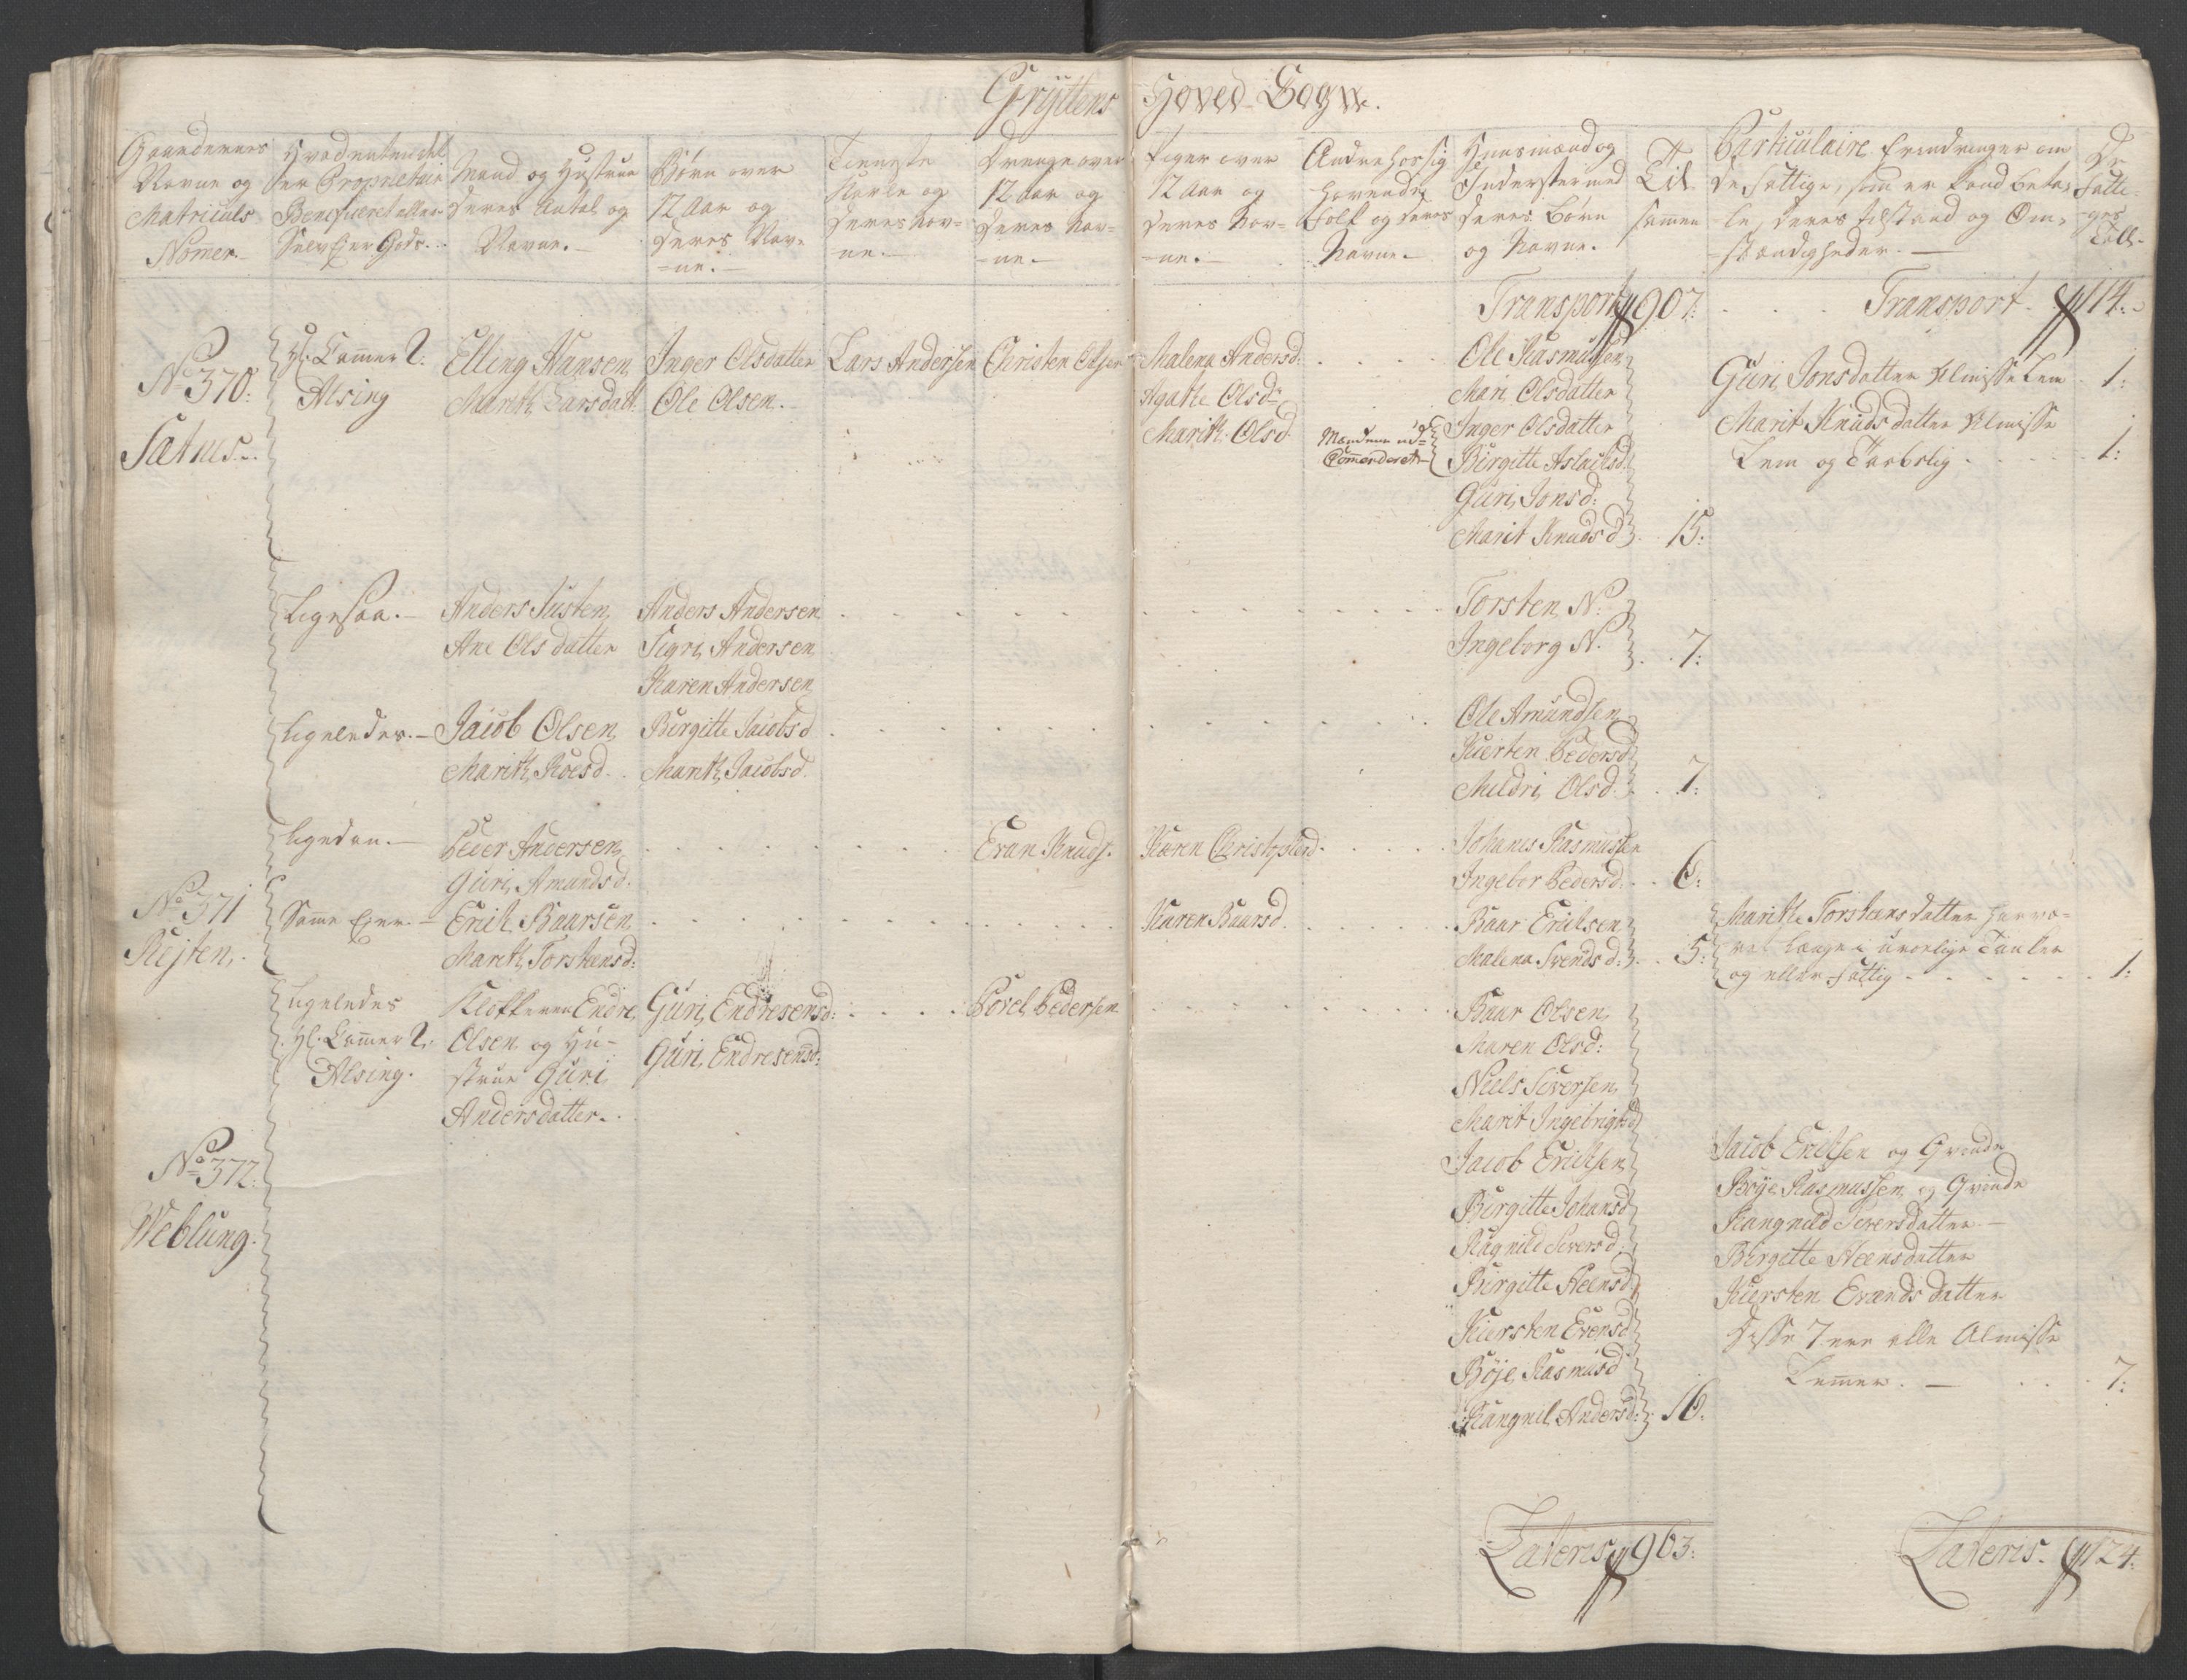 Gryttens Hoved-Sogn.
Gaardernes
Navne og
Matriculs
Nomer.
Hvad enten det
er Proprietair
Beneficeret eller
Selv Eier Gods.
Mand og Hustrue
deres Antal og
Navne.
Børn over
12 Aar og
deres Nav-
=ne.
Tieneste
Karle og
deres Nav=
=ne.
Drenge over
12 Aar og
deres Nav-
=ne.
Piger over
12 Aar og
deres Nav=
=ne.
Andre hos sig
havende
Folk og deres
Navne.
Huusmænd og
Inderster med
deres Børn
og Navne.
Til-
samen
Particulaire Erindringer om
de Fattige, som ei kand beta-
le, deres tilstand og Om-
=stændigheder.
De
Fatti-
ges
Tall.
Transport 907.
Transport 114.
No 370:
Sætnes.
Hl. Cammer R:
Alsing
Elling Hansen
Marith Larsdatt:
Inger Olsdatter
Ole Olsen.
Lars Andersen
Christen Olsen
Malena Andersd:
Agathe Olsd:
Marith Olsd.
Manden ud-
Commanderet
Ole Rasmusen
Mari Olsdatter
Inger Olsdatter
Birgitte Aslachsd.
Guri Jonsd:
Marit Knudsd. 15.
Guri Jonsdatter Almisse Lem 1:
Marit Knudsdatter Almisse
Lem og 1:
Ligesaa.
Anders Justen
Ane Olsdatter
Anders Andersen
Sigri Andersen
Karen Andersen
Torsten N:
Ingeborg N: 7:
Ligeledes.
Jacob Olsen
Marith Roesd.
Birgitte Jacobsd
Marith Jacobsd.
Ole Amundsen
Kiersten Pedersd
Mildri Olsd. 7:
Ligedan.
Peder Andersen
Guri Amundsd.
Evan Knuds.
Karen Christophersd.
Johanes Rasmussen
Ingebor Pedersd. 6:
No 371
Rejten.
Samme Eier.
Erich Baarsen
Marith Torstensd:
Karen Baarsd.
Baar Erichsen
Malena Svendsd: 5:
Marithe Torstensdatter har væ-
ret længe i urolige Tanker
og eller fattig 1:
Ligeledes
Hl. Cammer R:
Alsing.
Klokkeren Endre
Olsen og Hu-
strue Guri
Andersdatter.
Guri Endresensd:
Guri Endresensd:
Povel Pedersen
Baar Olsen
Karen Olsd:
Niels Siversen
Marit Ingebrigtsd
Jacob Erichsen
Birgitte Johansd
Ragnild Siversd.
Birgitte Steensd
Kiersten Evensd
Bøje Rasmusd
Rangnil Andersd: 16.
No 372.
Weblung.
Jacob Erichsen og Qvinde
Bøye Rasmussen og Qvinde
Rangnild Siversdatter
Birgitte Steensdatter
Kiersten Evændsdatter
Disse 7 ere alle Almisse
Lemmer. 7:
Lateris 963:
Lateris. 124: